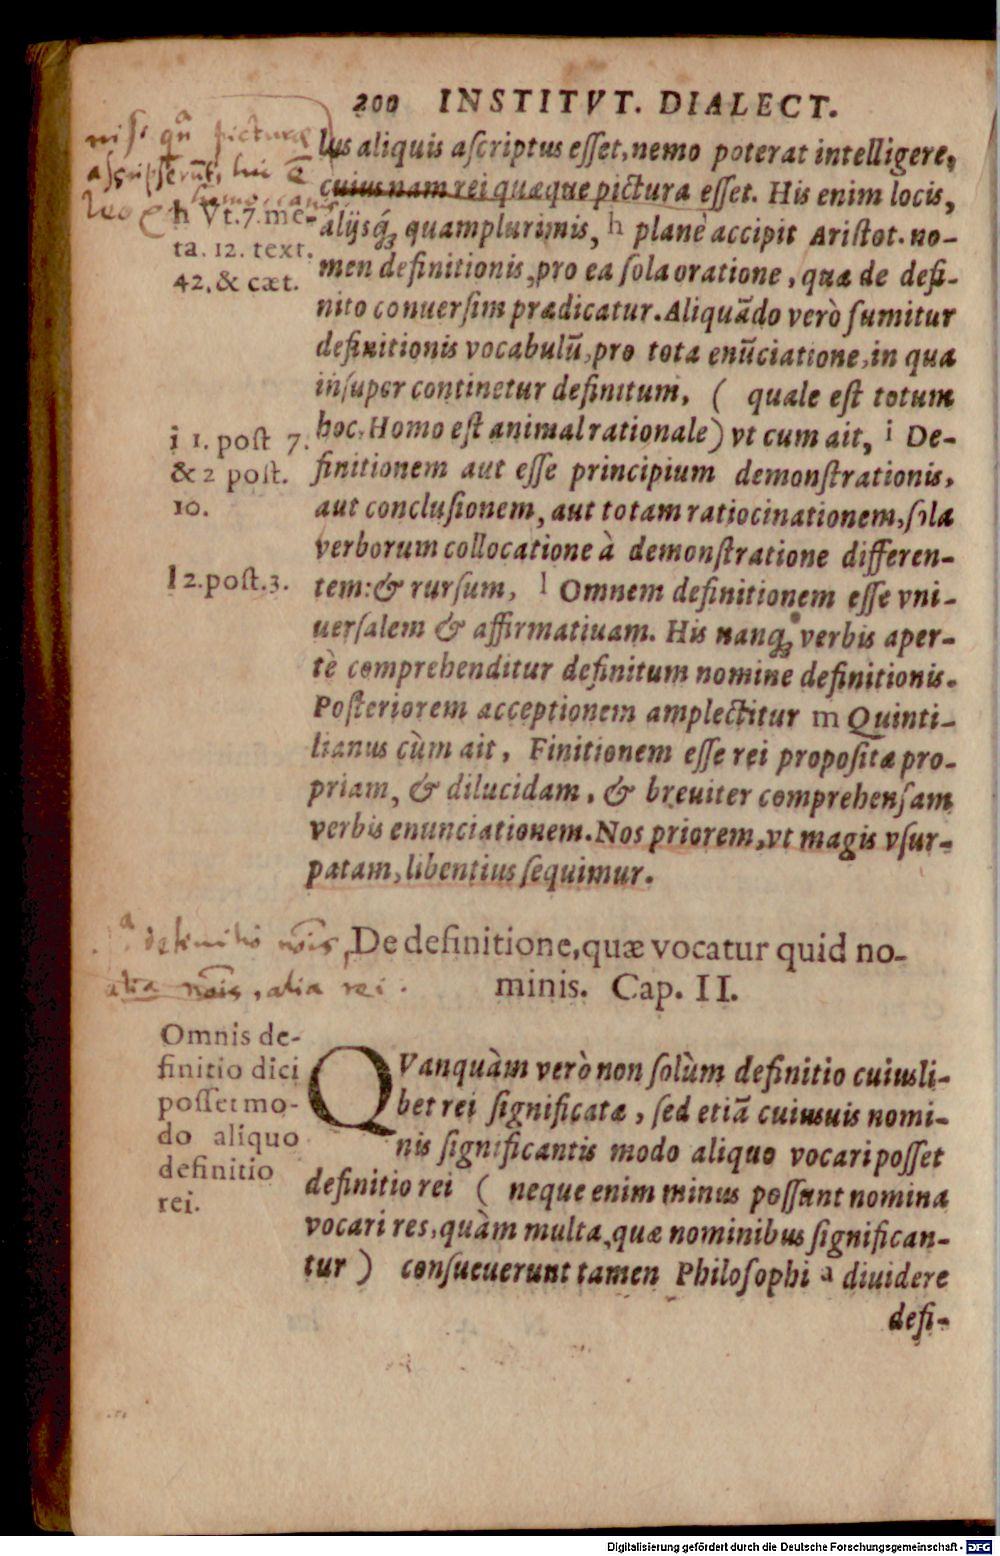 200 INSTITVT. DIALECT.
lus aliquis aſcriptus eſſet, nemo poterat intelligere,
cuius nam rei quæque pictura eſſet. His enim locis,
alijsq́ꝫ quamplurimis, h planè accipit Ariſtot. no-
men definitionis, pro ea ſola oratione, quæ de defi-
nito conuerſim prædicatur. Aliquādo verò ſumitur
definitionis vocabulū, pro tota enūciatione, in qua
inſuper continetur definitum, ( quale eſt totum
hoc, Homo eſt animal rationale) vt cum ait, i De-
finitionem aut eſſe principium demonſtrationis,
aut concluſionem, aut totam ratiocinationem, ſola
verborum collocatione à demonſtratione differen-
tem: & rurſum, l Omnem definitionem eſſe vni-
uerſalem & affirmatiuam. His nanq́ꝫ verbis aper-
tè comprehenditur definitum nomine definitionis.
Poſteriorem acceptionem amplectitur m Quinti-
lianus cùm ait, Finitionem eſſe rei propoſitæ pro-
priam, & dilucidam, & breuiter comprehenſam
verbis enunciationem. Nos priorem, vt magis vſur-
patam, libentius ſequimur.
niſi qñ picturæ
aſcripſerūt, hic ē
leo
h Vt. 7. me-
ta. 12. text.
42. & cæt.
i 1. poſt 7.
& 2 poſt.
10.
l 2. poſt. 3.
a definitio nōis
alia nōis, alia rei.
De definitione, quæ vocatur quid no-
minis. Cap. II.
Omnis de-
finitio dici
poſſet mo-
do aliquo
definitio
rei.
QVanquàm verò non ſolùm definitio cuiuſli-
bet rei ſignificatæ, ſed etiā cuiusuis nomi-
nis ſignificantis modo aliquo vocari poſſet
definitio rei ( neque enim minus poſſunt nomina
vocari res, quàm multa, quæ nominibus ſignifican-
tur ) conſueuerunt tamen Philoſophi a diuidere
defi-
Digitalisierung gefördert durch die Deutsche Forschungsgemeinschaft - DFG